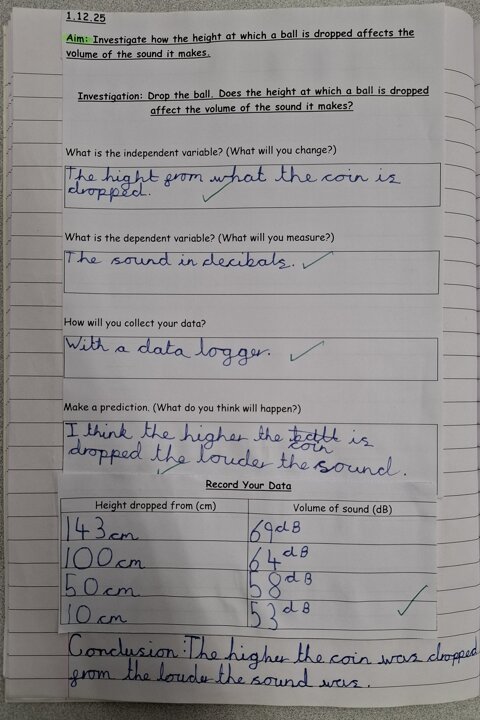 1.12.25
Aim: Investigate how the height at which a ball is dropped affects the
volume of the sound it makes.
Investigation: Drop the ball. Does the height at which a ball is dropped
affect the volume of the sound it makes?
What is the independent variable? (What will you change?)
The hight from what the coin is
dropped.
What is the dependent variable? (What will you measure?)
The sound in decibals.
How will you collect your data?
With a data logger.
Make a prediction. (What do you think will happen?)
I think the higher the ball coin is
dropped the louder the sound.
Record Your Data
Height dropped from (cm) Volume of sound (dB)
143cm 69dB
100cm 64dB
50cm 58dB
10cm 53dB
Conclusion: The higher the coin was dropped
from the louder the sound was.